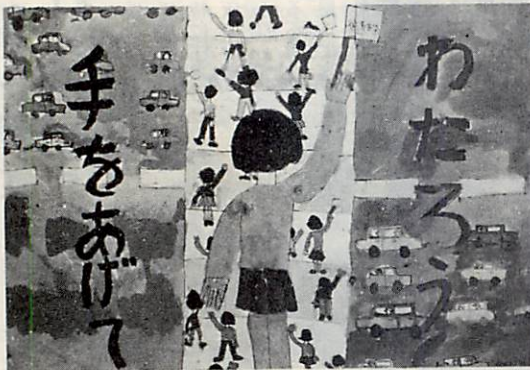 わたろう
手をあげて